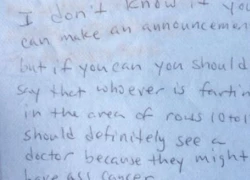 I don't know if you
can make an announcement
but if you can you should
say that whoever is fartin
in the area of rows 10 to 1
should definitely see a
doctor because they might
have ass cancer